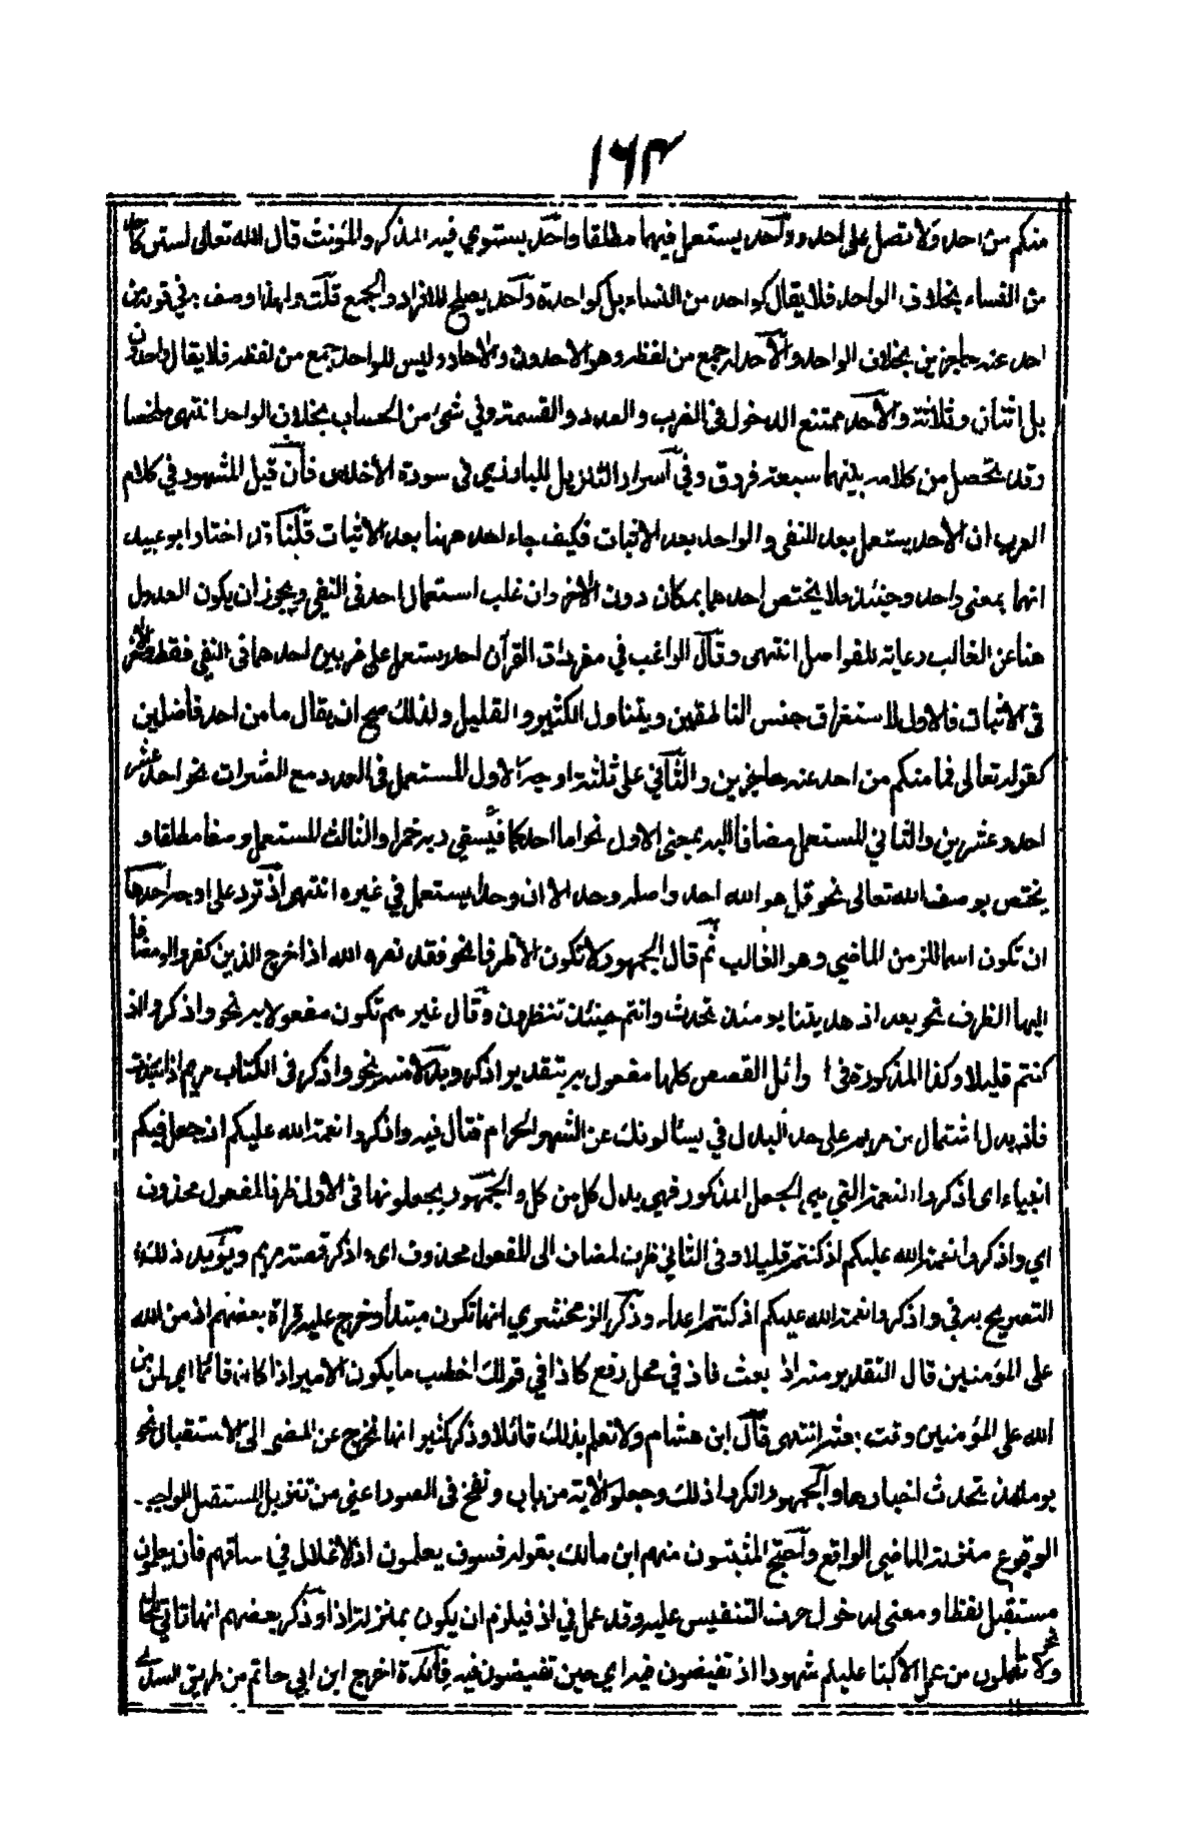 ١٦٣
منكم من احد ولا تصل على احد وواحد يستعمل فيهما مطلقا واحد يستوي فيه المذكر والمؤنث قال الله تعالى لستن كاحد
من النساء بخلاف الواحد فلا يقال كواحد من النساء بل كواحدة واحد يصلح للافراد والجمع قلت ولهذا وصف به في قوله من
احد عنه حاجزين بخلاف الواحد والاحد له جمع من لفظه وهو الاحدون والاحاد وليس للواحد جمع من لفظه فلا يقال واحدون
بل اثنان وثلاثة والاحد ممتنع الدخول فى الضرب والعدد والقسمة وفي شئ من الحساب بخلاف الواحد انتهى ملخصا
وقد تحصل من كلامه بينهما سبعة فروق وفي اسرار التنزيل للبارزي فى سورة الاخلاص فان قيل المشهور في كلام
العرب ان الاحد يستعمل بعد النفى والواحد بعد الاثبات فكيف جاء احد ههنا بعد الاثبات قلنا قد اختار ابو عبيد
انهما بمعنى واحد وحينئذ فلا يختص احدهما بمكان دون الاخر وان غلب استعمال احد فى النفى ويجوز ان يكون العدول
هنا عن الغالب رعاية للفواصل انتهى وقال الراغب في مفردات القرآن احد يستعمل على ضربين احدهما فى النفى فقط والاخر
فى الاثبات فالاول لاستغراق جنس الناطقين ويتناول الكثير والقليل ولذلك صح ان يقال ما من احد فاضلين
كقوله تعالى فما منكم من احد عنه حاجزين والثاني على ثلثة اوجه الاول المستعمل فى العدد مع العشرات نحو احد عشر
احد وعشرين والثاني المستعمل مضافا اليه بمعنى الاول نحو اما احدكما فيسقى ربه خمرا والثالث المستعمل وصفا مطلقا و
يختص بوصف الله تعالى نحو قل هو الله احد واصله وحد الا ان وحدا يستعمل في غيره انتهى اذ ترد على اوجه احدها
ان تكون اسما للزمن الماضي وهو الغالب ثم قال الجمهور لا تكون الا ظرفا نحو فقد نصره الله اذ اخرجه الذين كفروا او مضافا
اليها الظرف نحو بعد اذ هديتنا يومئذ تحدث وانتم حينئذ تنظرون وقال غيرهم تكون مفعولا به نحو واذكروا اذ
كنتم قليلا وكذا المذكورة فى اوائل القصص كلها مفعول به بتقدير اذكر وبدلا منه نحو واذكر فى الكتاب مريم اذ انتبذت
فاذ بدل اشتمال من مريم على حد البدل في يسألونك عن الشهر الحرام قتال فيه واذكروا نعمة الله عليكم اذ جعل فيكم
انبياء اى اذكروا النعمة التي هي الجعل المذكور فهي بدل كل من كل والجمهور يجعلونها فى الاول ظرفا لمفعول محذوف
اي واذكروا نعمة الله عليكم اذ كنتم قليلا وفى الثاني ظرف لمضاف الى المفعول محذوف اى واذكر قصة مريم ويؤيد ذلك
التصريح به في واذكروا نعمة الله عليكم اذ كنتم اعداء وذكر الزمخشري انها تكون مبتدأ وخرج عليه قراءة بعضهم اذ من الله
على المؤمنين قال التقدير منه اذ بعث فاذ في محل رفع كاذا في قولك اخطب ما يكون الامير اذا كان قائما اي لمن من
الله على المؤمنين وقت بعثه انتهى قال ابن هشام ولا نعلم بذلك قائلا وذكر كثير انها تخرج عن المضي الى الاستقبال نحو
يومئذ تحدث اخبارها والجمهور انكروا ذلك وجعلوا الآية من باب ونفخ فى الصور اعني من تنزيل المستقبل الواجب
الوقوع منزلة الماضي الواقع واحتج المثبتون منهم ابن مالك بقوله فسوف يعلمون اذ الاغلال في اعناقهم فان يعلمون
مستقبل لفظا ومعنى لدخول حرف التنفيس عليه وقد عمل في اذ فيلزم ان يكون بمنزلة اذا وذكر بعضهم انها تاتي للحال
نحو ولا تعملون من عمل الا كنا عليكم شهودا اذ تفيضون فيه اي حين تفيضون فيه فائدة اخرج ابن ابي حاتم من طريق السدي